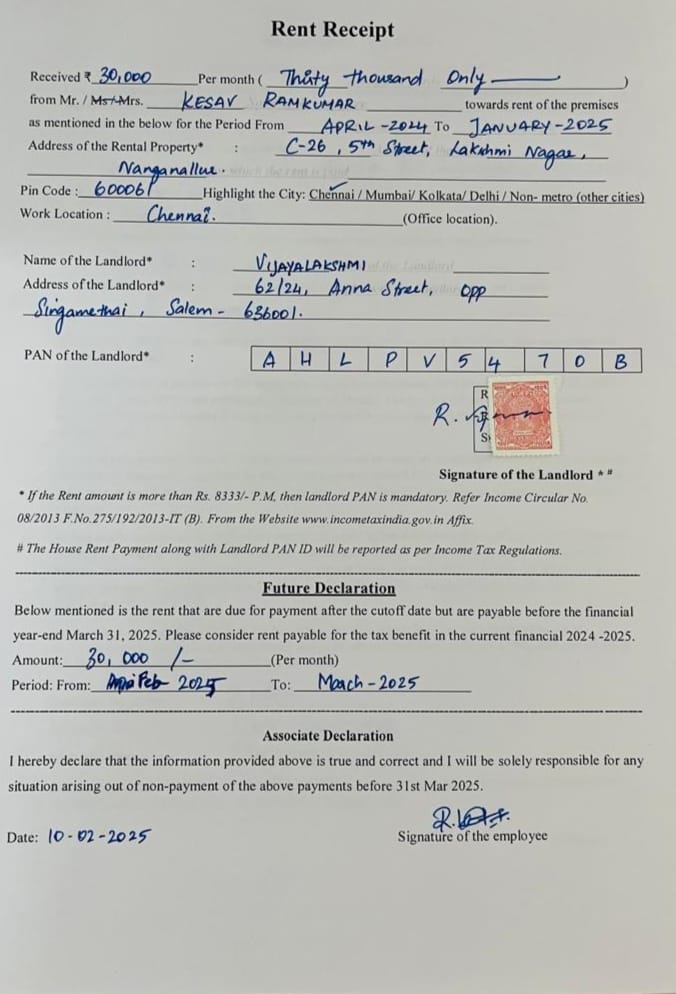 Rent Receipt
Received ₹ 30,000 Per month ( Thirty thousand Only )
from Mr. / Ms./Mrs. KESAV RAMKUMAR towards rent of the premises
as mentioned in the below for the Period From APRIL -2024 To JANUARY-2025
Address of the Rental Property* : C-26, 5th Street, Lakshmi Nagar,
Nanganallur.
Pin Code : 600061 Highlight the City: Chennai / Mumbai/ Kolkata/ Delhi / Non- metro (other cities)
Work Location : Chennai. (Office location).
Name of the Landlord* : VIJAYALAKSHMI
Address of the Landlord* : 62/24, Anna Street, opp
Singamethai, Salem - 636001.
PAN of the Landlord* : A H L P V 5 4 7 0 B
R.
Signature of the Landlord * #
* If the Rent amount is more than Rs. 8333/- P.M, then landlord PAN is mandatory. Refer Income Circular No.
08/2013 F.No.275/192/2013-IT (B). From the Website www.incometaxindia.gov.in Affix.
# The House Rent Payment along with Landlord PAN ID will be reported as per Income Tax Regulations.
Future Declaration
Below mentioned is the rent that are due for payment after the cutoff date but are payable before the financial
year-end March 31, 2025. Please consider rent payable for the tax benefit in the current financial 2024 -2025.
Amount: 30,000 /- (Per month)
Period: From: Feb 2025 To: March - 2025
Associate Declaration
I hereby declare that the information provided above is true and correct and I will be solely responsible for any
situation arising out of non-payment of the above payments before 31st Mar 2025.
Date: 10-02-2025
Signature of the employee